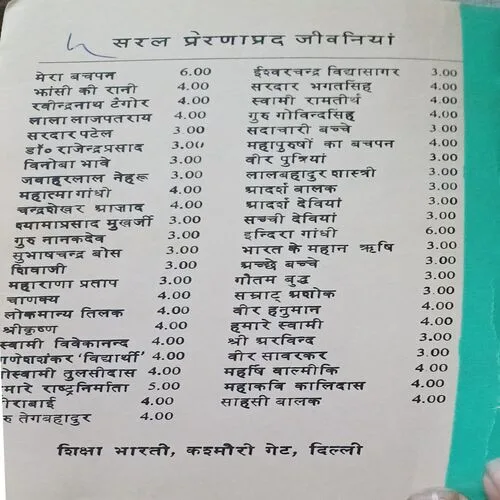 सरल प्रेरणाप्रद जीवनियां
मेरा बचपन 6.00
झांसी की रानी 4.00
रवीन्द्रनाथ टैगोर 4.00
लाला लाजपतराय 4.00
सरदार पटेल 3.00
डॉ० राजेन्द्रप्रसाद 3.00
विनोबा भावे 3.00
जवाहरलाल नेहरू 3.00
महात्मा गांधी 4.00
चन्द्रशेखर आज़ाद 4.00
श्यामाप्रसाद मुखर्जी 3.00
गुरु नानकदेव 3.00
सुभाषचन्द्र बोस 3.00
शिवाजी 3.00
महाराणा प्रताप 3.00
चाणक्य 4.00
लोकमान्य तिलक 4.00
श्रीकृष्ण 4.00
स्वामी विवेकानन्द 4.00
णेशशंकर 'विद्यार्थी' 4.00
ोस्वामी तुलसीदास 4.00
मारे राष्ट्रनिर्माता 5.00
ीराबाई 4.00
रु तेगबहादुर 4.00
ईश्वरचन्द्र विद्यासागर 3.00
सरदार भगतसिंह 4.00
स्वामी रामतीर्थ 3.00
गुरु गोविन्दसिंह 4.00
सदाचारी बच्चे 3.00
महापुरुषों का बचपन 4.00
वीर पुत्रियां 3.00
लालबहादुर शास्त्री 3.00
आदर्श बालक 3.00
आदर्श देवियां 3.00
सच्ची देवियां 3.00
इन्दिरा गांधी 6.00
भारत के महान ऋषि 3.00
अच्छे बच्चे 3.00
गौतम बुद्ध 3.00
सम्राट् अशोक 3.00
वीर हनुमान 4.00
हमारे स्वामी 4.00
श्री अरविन्द 3.00
वीर सावरकर 3.00
महर्षि वाल्मीकि 4.00
महाकवि कालिदास 4.00
साहसी बालक 4.00
शिक्षा भारती, कश्मीरी गेट, दिल्ली